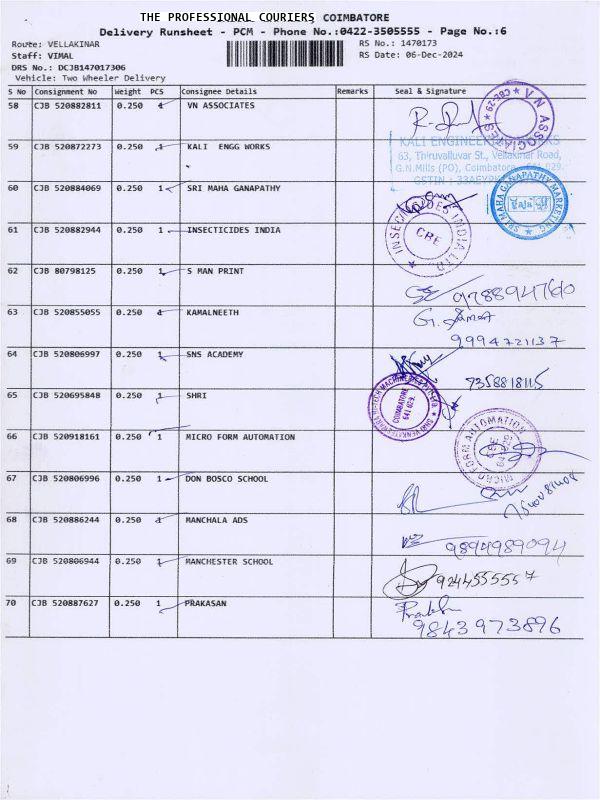 THE PROFESSIONAL COURIERS COIMBATORE
Delivery Runsheet - PCM - Phone No.:0422-3505555 - Page No.:6
Route: VELLAKINAR
RS No.: 1470173
Staff: VIMAL
RS Date: 06-Dec-2024
DRS No.: DCJB147017306
Vehicle: Two Wheeler Delivery
S No Consignment No Weight PCS Consignee Details Remarks Seal & Signature
58 CJB 520882811 0.250 1 VN ASSOCIATES
VN ASSOCIATES CBE-29
59 CJB 520872273 0.250 1 KALI ENGG WORKS
KALI ENGINEERING WORKS
63, Thiruvalluvar St., Vellakinar Road,
G.N.Mills (PO), Coimbatore - 641 029.
60 CJB 520884069 0.250 1 SRI MAHA GANAPATHY
SRI MAHA GANAPATHY MARKETING
61 CJB 520882944 0.250 1 INSECTICIDES INDIA
INSECTICIDES INDIA LTD
CBE
62 CJB 80798125 0.250 1 S MAN PRINT
978894760
63 CJB 520855055 0.250 1 KAMALNEETH
9994721137
64 CJB 520806997 0.250 1 SNS ACADEMY
7358818115
65 CJB 520695848 0.250 1 SHRI
COIMBATORE
641 029.
66 CJB 520918161 0.250 1 MICRO FORM AUTOMATION
MICRO FORM AUTOMATION
67 CJB 520806996 0.250 1 DON BOSCO SCHOOL
68 CJB 520886244 0.250 1 MANCHALA ADS
9894989094
69 CJB 520806944 0.250 1 MANCHESTER SCHOOL
9244555557
70 CJB 520887627 0.250 1 PRAKASAN
9843973896